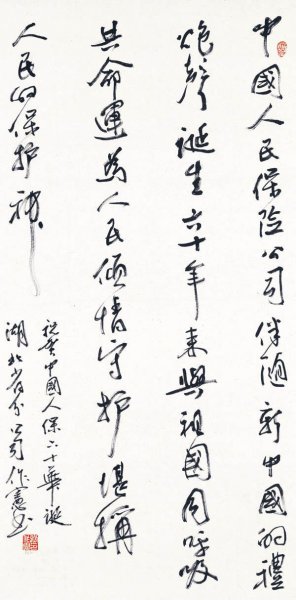 中國人民保险公司伴随新中國的禮
炮聲诞生六十年来與祖國同呼吸
共命運為人民倾情守护堪稱
人民的保护神
祝贺中國人保六十華诞
湖北省分公司作憲书